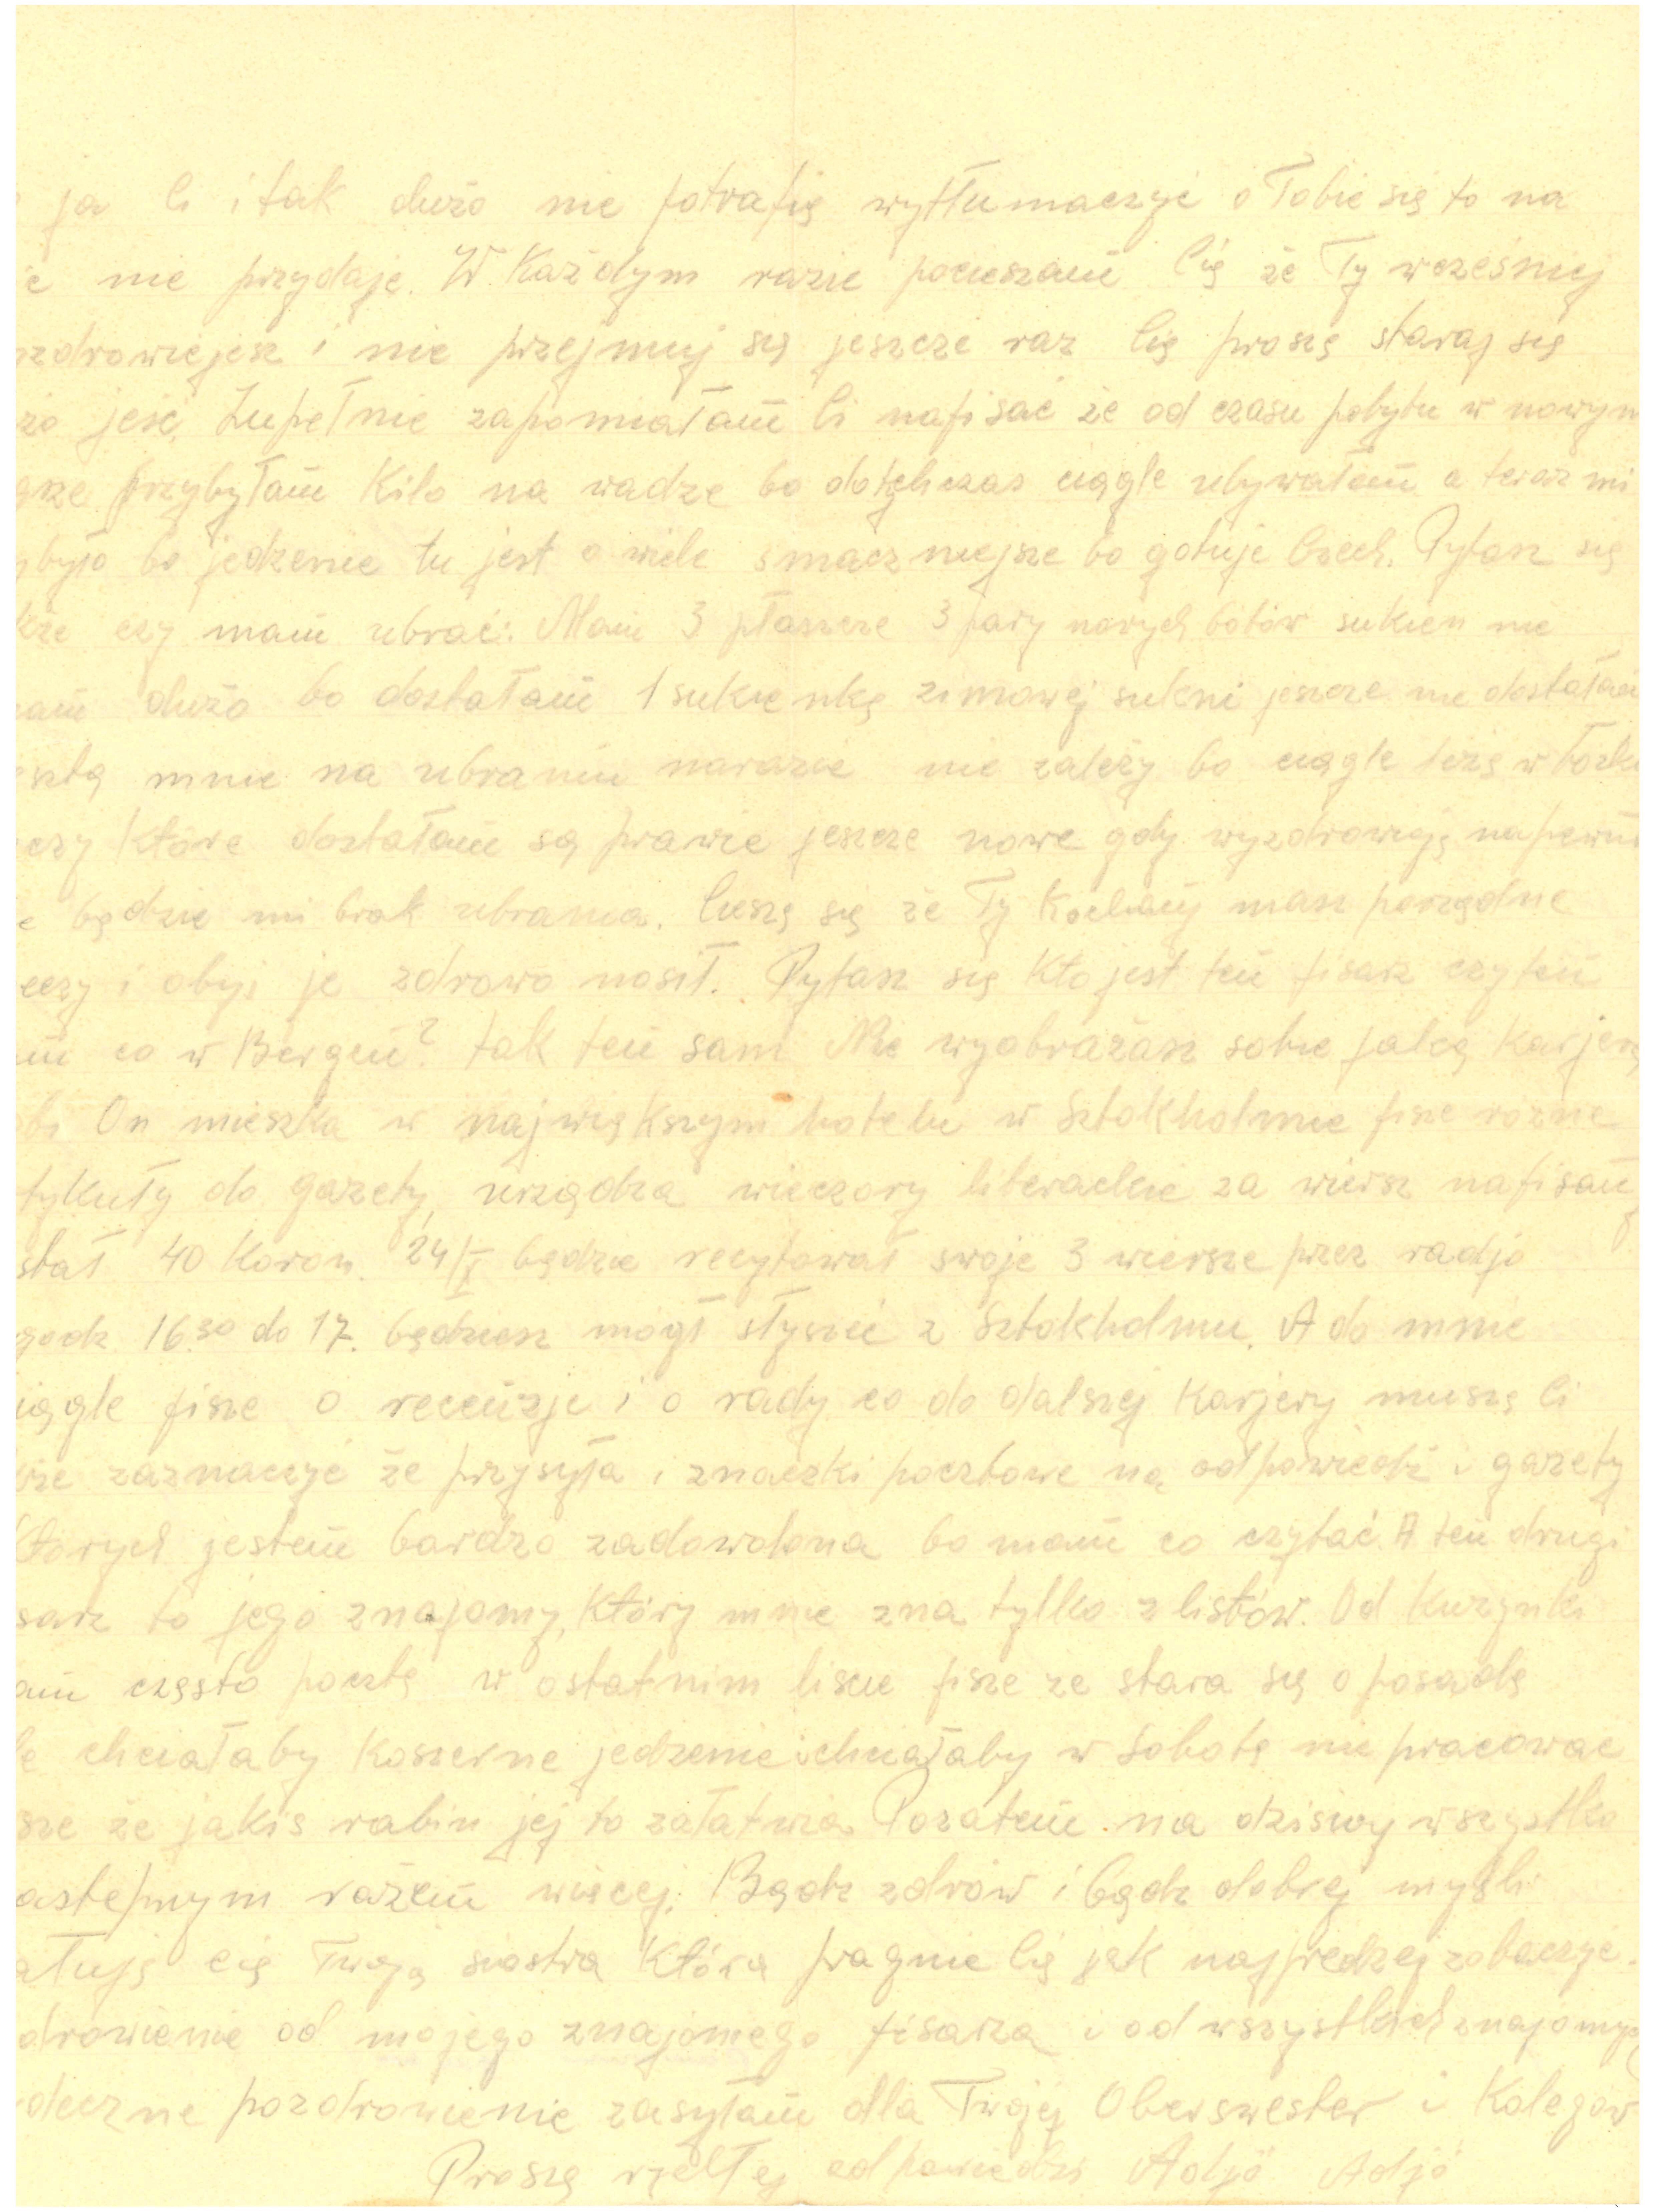 ja Ci i tak dużo nie potrafię wytłumaczyć o Tobie się to na
nie przydaje. W każdym razie pocieszam Cię że Ty wcześniej
zdrowiejesz i nie przejmuj się jeszcze raz Cię proszę staraj się
żo jeść. Zupełnie zapomniałam Ci napisać że od czasu pobytu w nowym
przybyłam kilo na wadze bo dotychczas ciągle ubywałam a teraz mi
było bo jedzenie tu jest o wiele smaczniejsze bo gotuje Czech. Pytasz się
kże czy mam ubrać: Mam 3 płaszcze 3 pary nowych botów sukien nie
am dużo bo dostałam 1 sukienkę zimowej sukni jeszcze nie dostałam
sztą mnie na ubraniu narazie nie zależy bo ciągle leżę w łóżku
eczy które dostałam są prawie jeszcze nowe gdy wyzdrowieję napewno
e będzie mi brak ubrania. Cieszę się że Ty Kochany masz porządne
eczy i obyś je zdrowo nosił. Pytasz się kto jest ten pisarz czy ten
am co w Bergen? tak ten sam Nie wyobrażasz sobie jaką karjerę
obi On mieszka w największym hotelu w Sztokholmie pisze rożne
tykuły do gazety, urządza wieczory literackie za wiersz napisany
stał 40 Koron. 24/X będzie recytował swoje 3 wiersze przez radjo
godz 16.30 do 17. będziesz mógł słyszeć z Sztokholmu. A do mnie
iągle pisze o recenzje i o rady co do dalszej karjery muszę Ci
że zaznaczyć że przysyła i znaczki pocztowe na odpowiedź i gazety
których jestem bardzo zadowolona bo mam co czytać. A ten drugi
sarz to jego znajomy, który mnie zna tylko z listów. Od Kuzynki
am często pocztę w ostatnim liscie pisze ze stara się o posadę
le chciałaby koszerne jedzenie i chciałaby w Sobotę nie pracować
sze że jakis rabin jej to załatwia. Pozatem na dzisiaj wszystko
astępnym razem więcej. Bądz zdrów i bądz dobrej myśli
ałuję cię Twoja siostra która pragnie Cię jak najprędzej zobaczyć.
drowienie od mojego znajomego pisarza i od wszystkich znajomych
deczne pozdrowienie zasyłam dla Twojej Oberswester i Kolegów
Proszę rychłej odpowiedzi Adjö Adjö